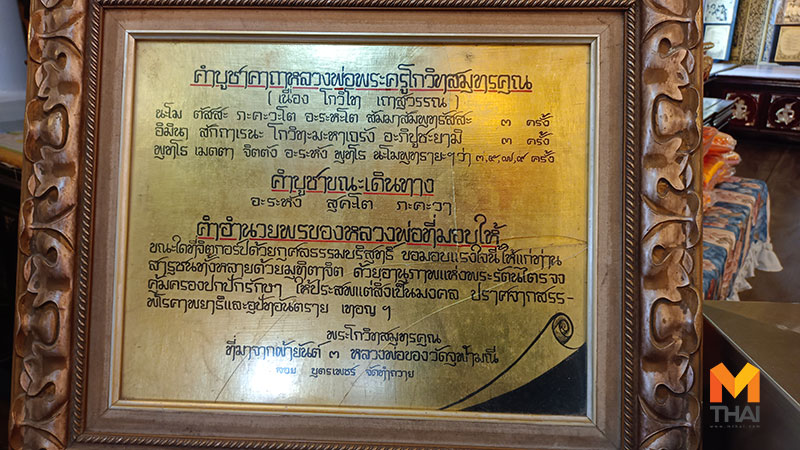 คำบูชาคาถาหลวงพ่อพระครูโกวิทสมุทรคุณ
(เนื่อง โกวิโท เถาสุวรรณ)
นะโม ตัสสะ ภะคะวะโต อะระหะโต สัมมาสัมพุทธัสสะ ๓ ครั้ง
อิมินา สักกาเรนะ โกวิทะมะหาเถรัง อะภิปูชะยามิ ๓ ครั้ง
พุทโธ เมตตา จิตตัง อะระหัง พุทโธ นะโมพุทธายะฯว่า ๓,๕,๗,๙ ครั้ง
คำบูชาขณะเดินทาง
อะระหัง สุคะโต ภะคะวา
คำอำนวยพรของหลวงพ่อที่มอบให้
ขณะใดที่จิตกอร์ปด้วยกุศลธรรมบริสุทธิ์ ขอมอบแรงใจนี้ให้แก่ท่าน
สาธุชนทั้งหลายด้วยมุทิตาจิต ด้วยอานุภาพแห่งพระรัตนไตรจง
คุ้มครองปกปักรักษา ให้ประสพแต่สิ่งเป็นมงคล ปราศจากสรร-
พโรคาพยาธิและอุปัทอันตราย เทอญ ฯ
พระโกวิทสมุทรคุณ
ที่มาจากผ้ายันต์ ๓ หลวงพ่อของวัดจุฬามณี
บุตรเพชร์ จัดทำถวาย
MTHAI
www.mthai.com